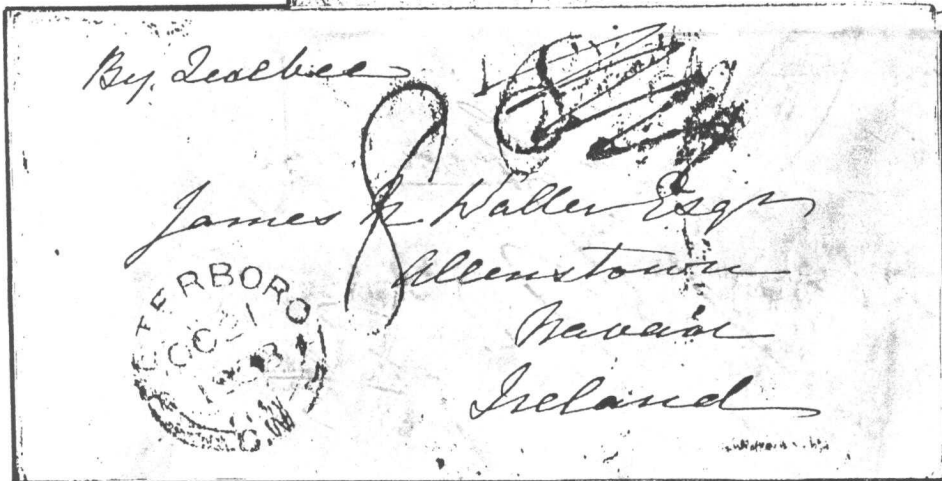 By. Quebec
8
James N Waller Esqr
Allenstown
Navan
Ireland
TERBORO
OC 21
C.W